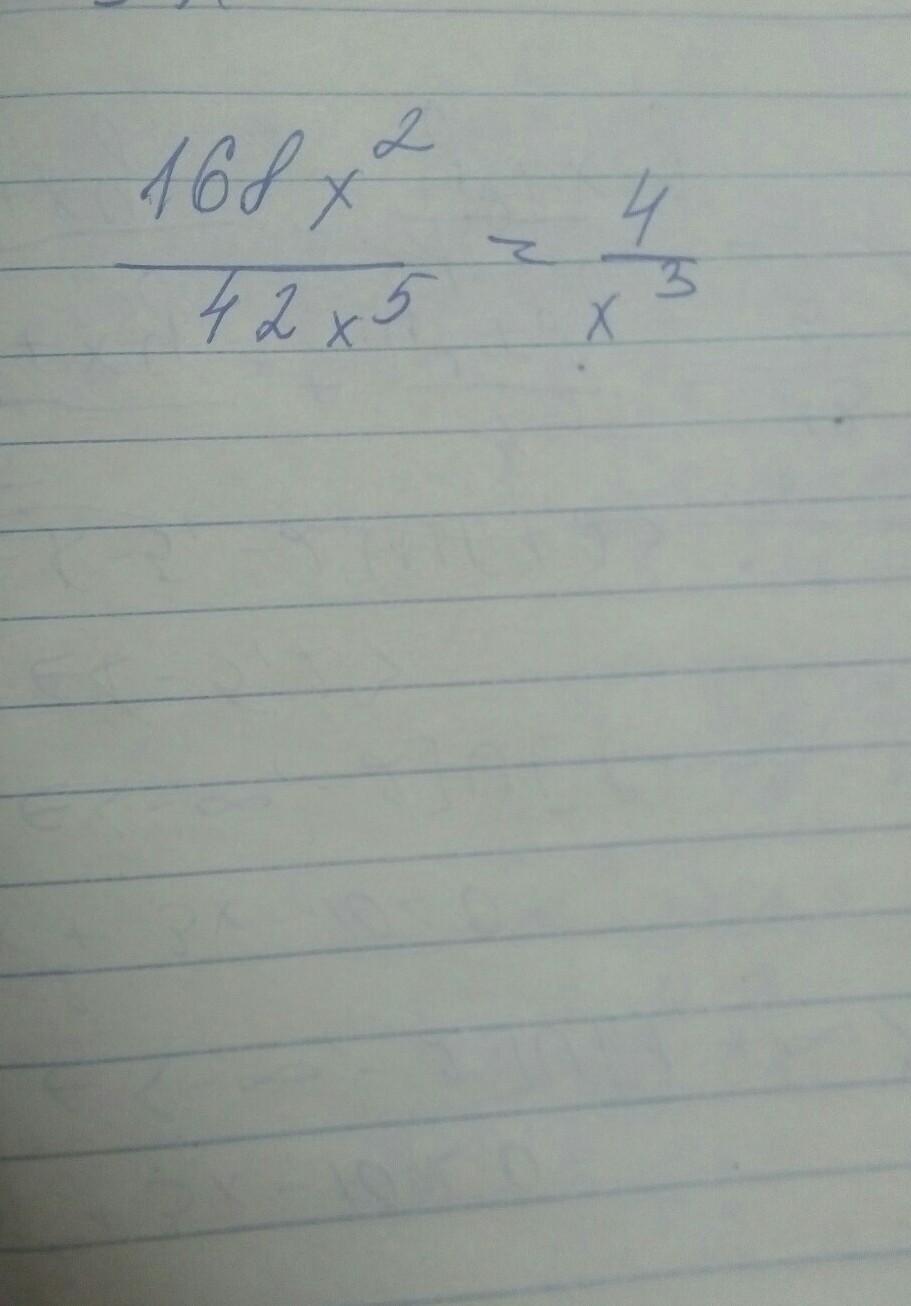 168x² / 42x⁵ = 4 / x³